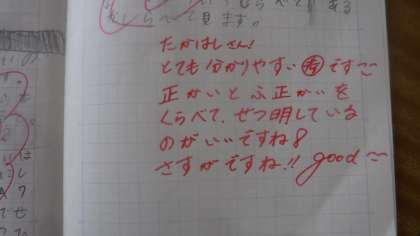 しらべて見ます。
たかはしさん!
とても分かりやすい秀です
正かいとふ正かいを
くらべて、せつ明している
のがいいですね
さすがですね!! good